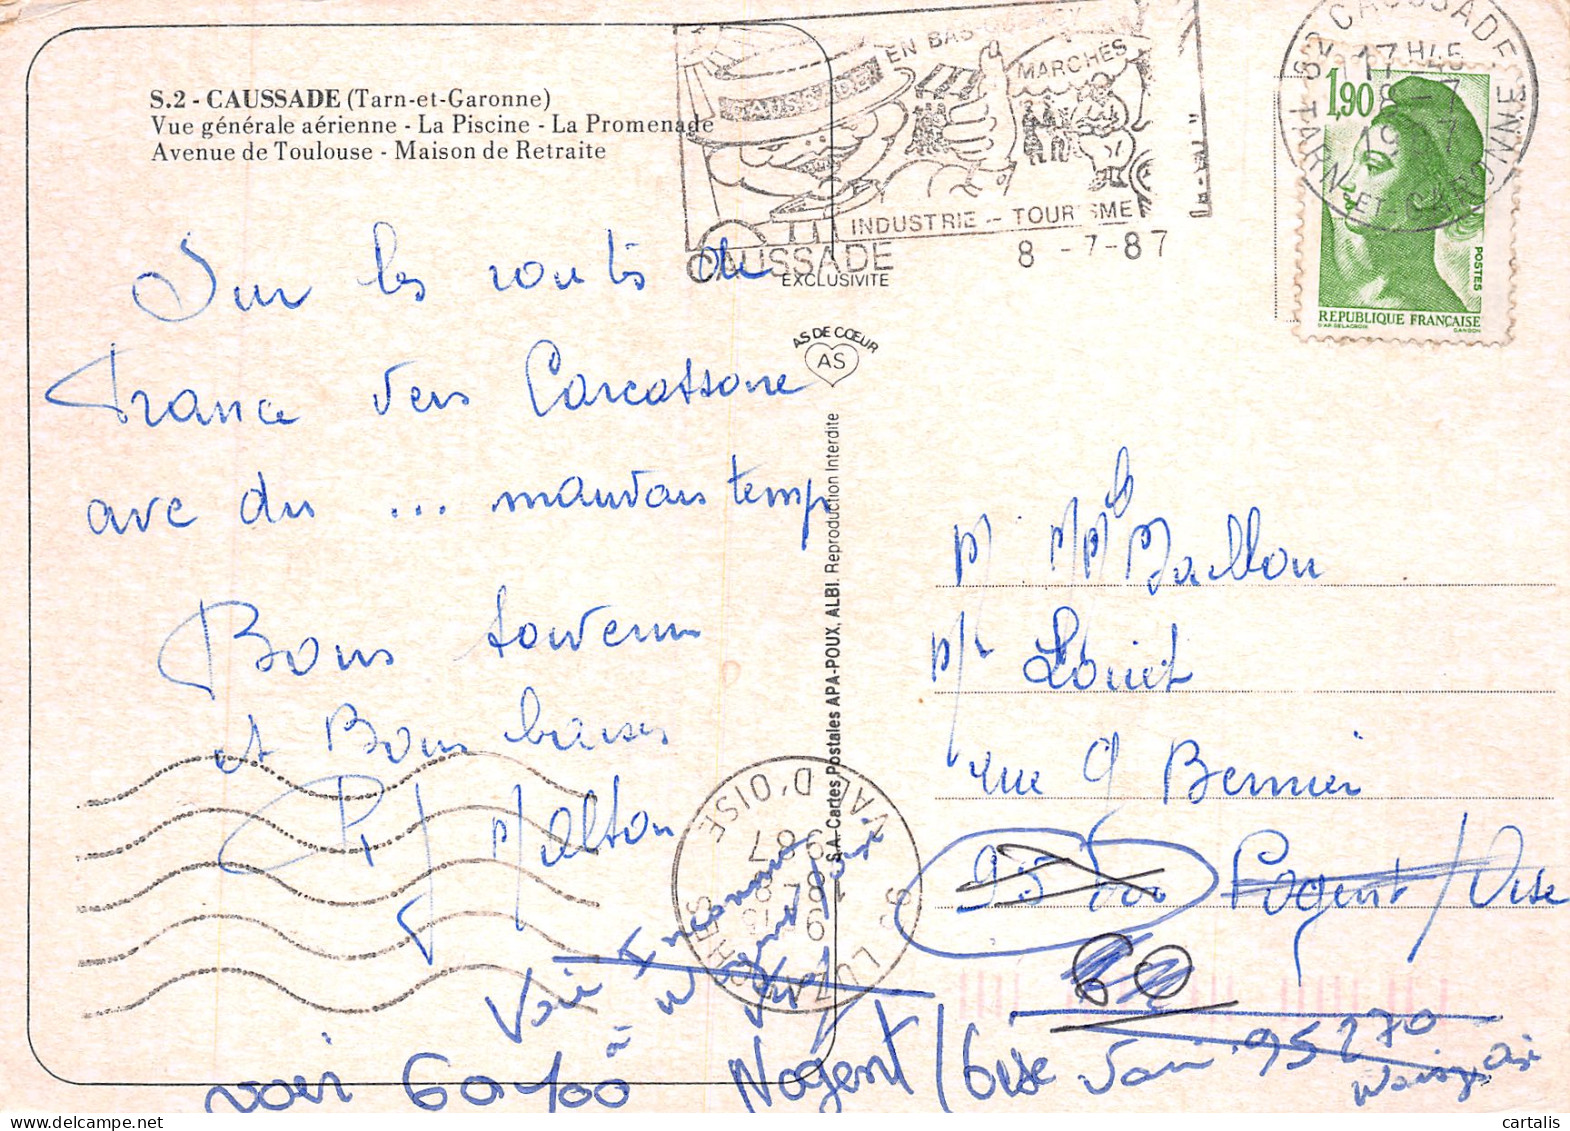 S.2 - CAUSSADE (Tarn-et-Garonne)
Vue générale aérienne - La Piscine - La Promenade
Avenue de Toulouse - Maison de Retraite
EN BAS QUERCY
CAUSSADE
MARCHÉS
INDUSTRIE -- TOURISME
CAUSSADE
EXCLUSIVITÉ
8 - 7 - 87
82 CAUSSADE
17 H45
8 - 7
1987
TARN-ET-GARONNE
1,90
POSTES
REPUBLIQUE FRANÇAISE
D'AP. DELACROIX GANDON
AS DE CŒUR
AS
S.A. Cartes Postales APA-POUX, ALBI. Reproduction Interdite
Sur les routes de
France vers Carcassone
avec du ... mauvais temps
Bons souvenirs
et Bons baisers
Malton
M Mme Maillon
Louet
rue Bernier
95 Nogent/Oise
60
95270
LUZARCHES
VAL D'OISE
Voir Inconnu
Nogent/Oise
voir 60400 à Nogent/Oise voir 95270